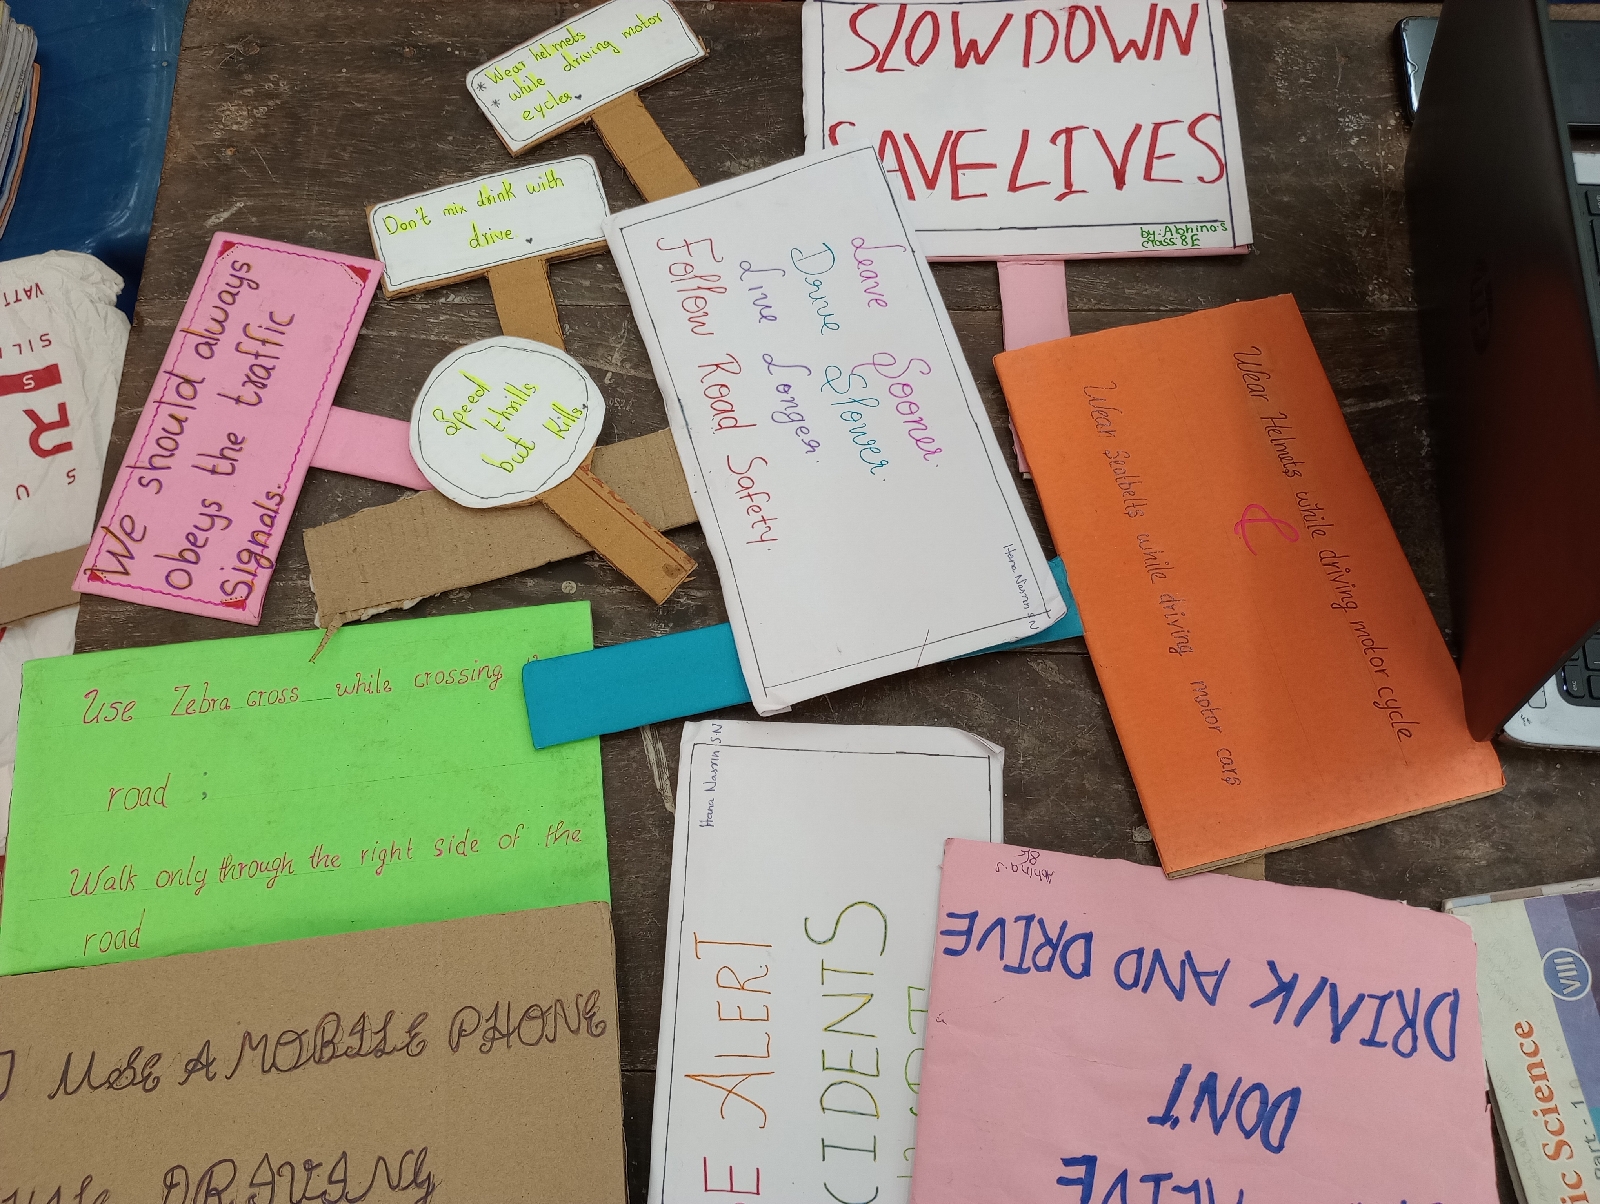 * Wear helmets
* while driving motor
cycles
Don't mix drink with
drive
SLOW DOWN
SAVE LIVES
by: Abhina.s
class: 8E
We should always
obeys the traffic
signals.
Speed
thrills
but kills
Leave Sooner.
Drive Slower.
Live Longer.
Follow Road Safety.
Hana Nasrin S N
Wear Helmets while driving motor cycle
&
Wear seatbelts while driving motor cars
Use Zebra cross while crossing
road ;
Walk only through the right side of the
road
USE A MOBILE PHONE
DRIVING
Hana Nasrin S N
E ALERT
CIDENTS
Abhina.s
8E
DRINK AND DRIVE
DONT
VIII
ic Science
Part - 1